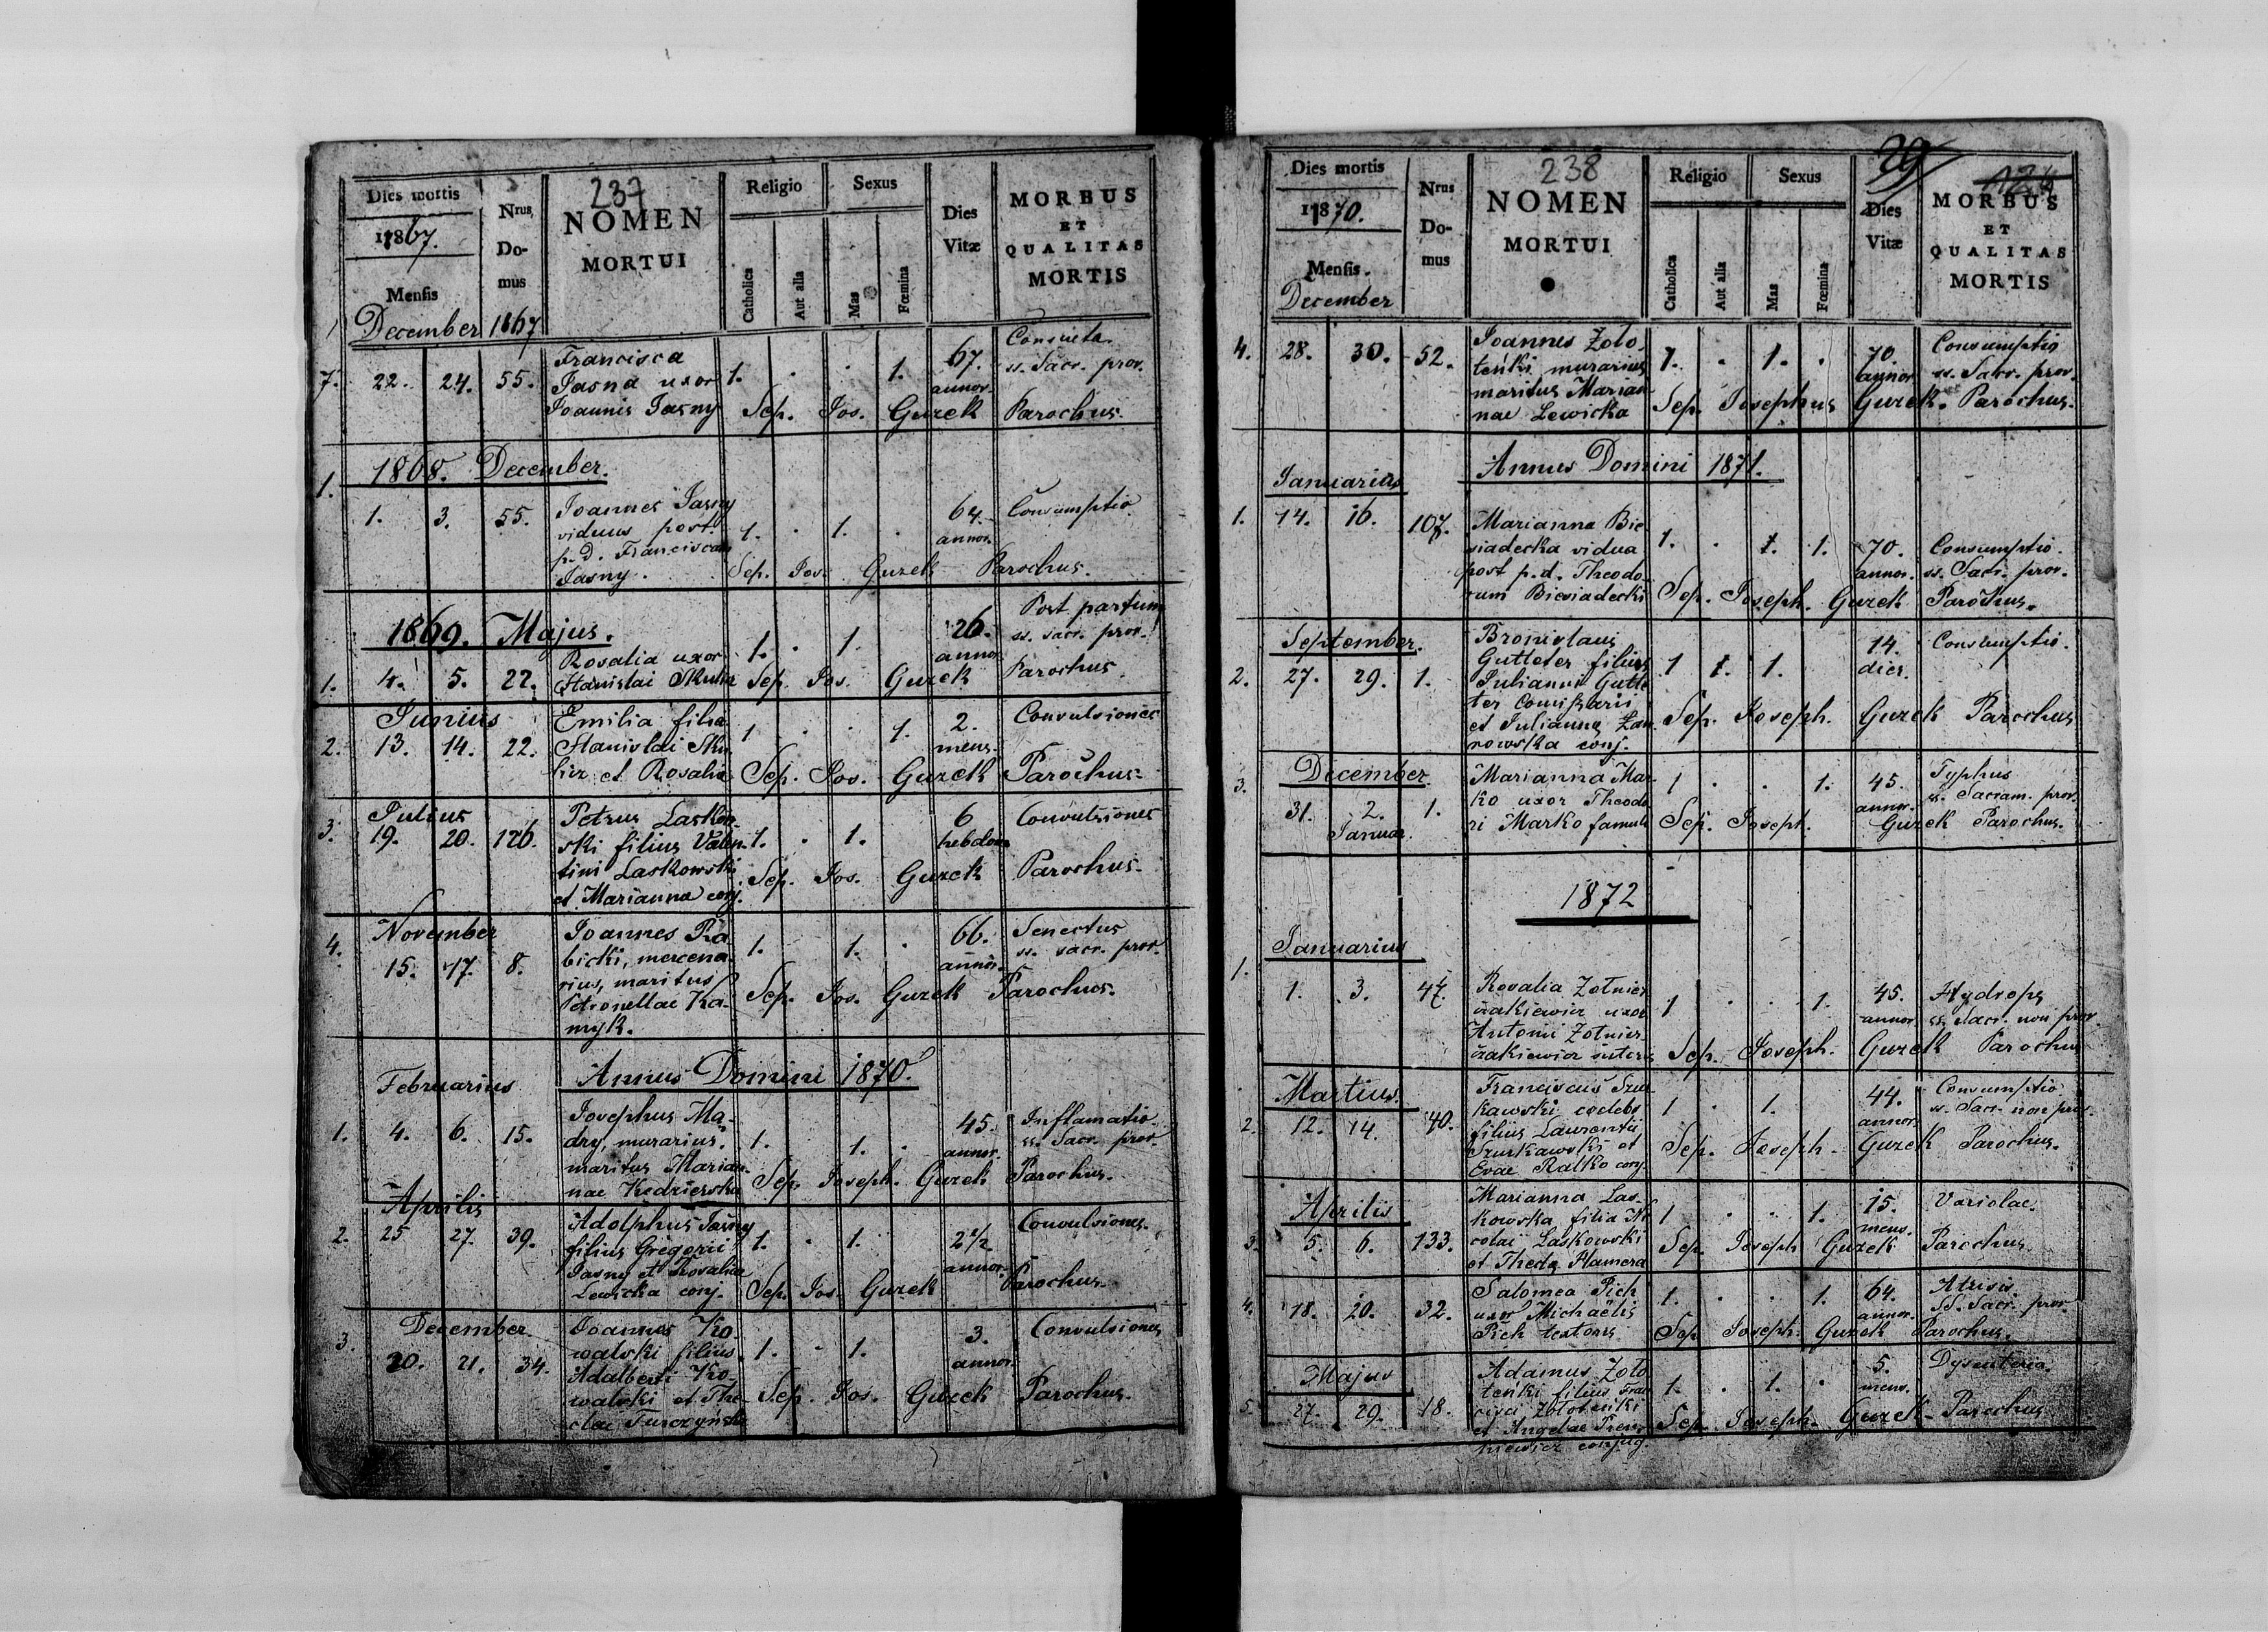 237
Dies mortis
1867.
Mensis
December 1867
Nrus
Do-
mus
NOMEN
MORTUI
Religio
Catholica
Aut alia
Sexus
Mas
Fœmina
Dies
Vitæ
MORBUS
ET
QUALITAS
MORTIS
7. 22. 24. 55.
Francisca
Jasna uxor
Joannis Jasny
1. . . 1.
67.
annor.
Consueta.
ss. Sacr. prov.
Sep. Jos. Guzek Parochus.
1868. December.
1. 1. 3. 55.
Joannes Jasny
viduus post
p. d. Franciscam
Jasny.
1. . 1. .
64.
annor.
Consumptio
Sep. Jos. Guzek Parochus.
1869. Majus.
1. 4. 5. 22.
Rosalia uxor
Stanislai
1. . 1.
26.
annor.
Post partum
ss. sacr. prov.
Sep. Jos. Guzek Parochus
Junius
2. 13. 14. 22.
Emilia filia
Stanislai
et Rosalia
1 . . 1.
2.
mens.
Convulsiones
Sep. Jos. Guzek Parochus.
Julius
3. 19. 20. 126.
Petrus Laskow-
ski filius Valen-
tini Laskowski
et Marianna conj.
1. . 1.
6
hebdom
Convulsiones
Sep. Jos. Guzek Parochus.
November
4. 15. 17. 8.
Joannes Ra-
bicki, mercena-
rius, maritus
Petronellae Ka-
myk.
1. 1. .
66.
annor.
Senectus
ss. sacr. prov.
Sep. Jos. Guzek Parochus.
Annus Domini 1870.
Februarius
1. 4. 6. 15.
Josephus Ma-
dry, murarius,
maritus Marian-
nae Kędzierska
1. 1. .
45.
annor.
Inflamatio.
ss. Sacr. prov.
Sep. Joseph. Guzek Parochus.
Aprilis
2. 25 27. 39.
Adolphus Jasny
filius Gregorii
Jasny et Rosaliae
Lewicka conj.
1. . 1.
2 1/2
annor.
Convulsiones.
Sep. Jos. Guzek Parochus.
December.
3. 20. 21. 34.
Joannes Ko-
walski filius
Adalberti Ko-
walski et The-
clae Turczyńska
1. . 1.
3.
annor.
Convulsiones
Sep. Jos. Guzek Parochus.
238
29
124
Dies mortis
1870.
Mensis.
December
Nrus
Do-
mus
NOMEN
MORTUI
Religio
Catholica
Aut alia
Sexus
Mas
Fœmina
Dies
Vitæ
MORBUS
ET
QUALITAS
MORTIS
4. 28. 30. 52.
Joannes Zolo-
teńki murarius
maritus Marian-
nae Lewicka
1. . 1. .
70.
annor.
Consumptio
ss. Sacr. prov.
Sep. Josephus Guzek. Parochus.
Annus Domini 1871.
Januarius
1. 14. 16. 107.
Marianna Bie-
siadecka vidua
post p. d. Theodo-
rum Biesiadecki
1. . 1. 1.
70.
annor.
Consumptio.
ss. Sacr. prov.
Sep. Joseph. Guzek Parochus.
September.
2. 27. 29. 1.
Bronislaus
Gutteter filius
Juliani Gutte-
ter Comissarii
et Julianna Zar-
nowska conj.
1 1. 1.
14.
dies.
Consumptio.
Sep. Joseph. Guzek Parochus
December.
3. 31. 2. 1.
Januar.
Marianna Mar-
ko uxor Theodo-
ri Marko famuli
1 . . 1.
45.
annor.
Typhus
ss. Sacram. prov.
Sep. Joseph. Guzek Parochus.
1872
Januarius
1. 1. 3. 47.
Rosalia Zolnier-
czakiewicz uxor
Antonii Zolnier-
czakiewicz sutoris
1 . . 1.
45.
annor.
Hydrops
ss. Sacr. non prov.
Sep. Joseph. Guzek Parochus
Martius.
2. 12. 14. 40.
Franciscus Szur-
kawski coelebs
filius Laurentii
Szurkawski et
Evae Ratko conj.
1 . 1.
44.
annor.
Consumptio
ss. Sacr. non prov.
Sep. Joseph. Guzek Parochus.
Aprilis
3. 5. 6. 133.
Marianna Las-
kowska filia Ni-
colai Laskowski
et Thecla Hamera
1 . . 1.
15.
mens.
Variolae.
Sep. Joseph Guzek Parochus.
4. 18. 20. 32.
Salomea Pich
uxor Michaelis
Pich textoris
1. . . 1.
64.
annor.
SS. Sacr. prov.
Sep. Joseph. Guzek Parochus.
Majus
5. 27. 29. 18.
Adamus Zolo-
teńki filius Fran-
cisci Zoloteńki
et Angelae
conjug.
1. . 1. .
5.
mens.
Dysenteria.
Sep. Joseph. Guzek Parochus